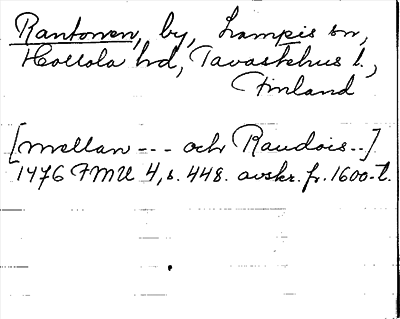 Rantonen, by, Lampis sn,
Hollola hd, Tavastehus l.,
Finland
[mellan --- och Raudois..]
1476 FMU 4, s. 448. avskr. fr. 1600-t.